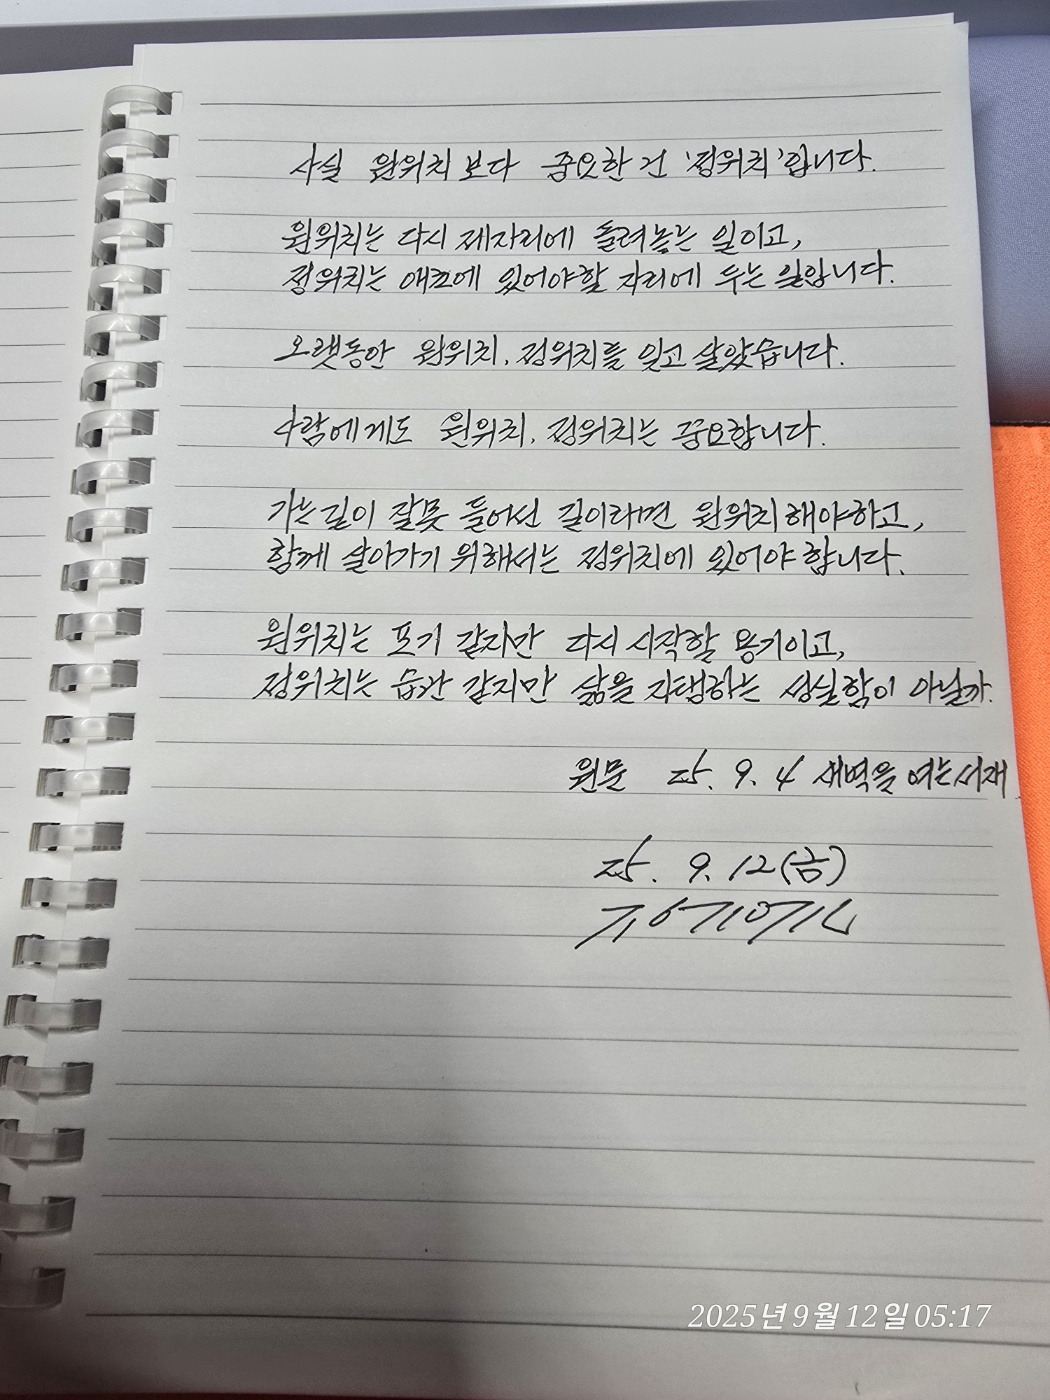 사실 원위치 보다 중요한 건 '정위치'랍니다.
원위치는 다시 제자리에 돌려놓는 일이고,
정위치는 애초에 있어야할 자리에 두는 일입니다.
오랫동안 원위치, 정위치를 잊고 살았습니다.
사람에게도 원위치, 정위치는 중요합니다.
가는길이 잘못 들어선 길이라면 원위치해야하고,
함께 살아가기 위해서는 정위치에 있어야 합니다.
원위치는 포기 같지만 다시 시작할 용기이고,
정위치는 습관 같지만 삶을 지탱하는 성실함이 아닐까.
원문 25. 9. 4 새벽을 여는서재
25. 9. 12(금)
2025년 9월 12일 05:17